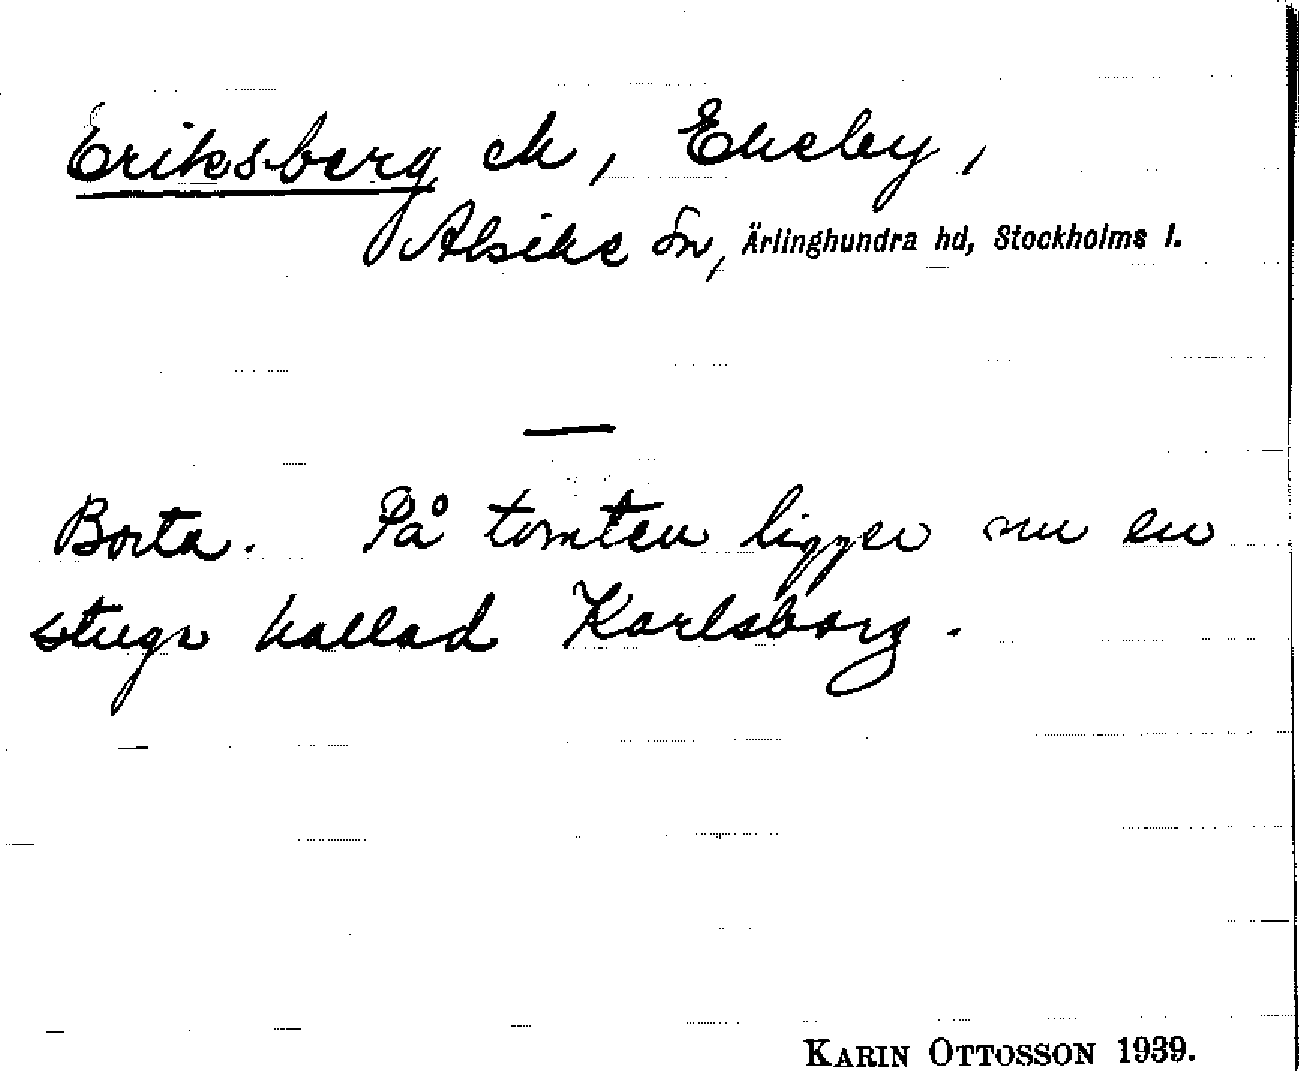 Eriksberg ek, Ekeby,
Alsike sn, Ärlinghundra hd, Stockholms l.
—
Borta. På tomten ligger nu en
stuga kallad Karlsborg.
KARIN OTTOSSON 1939.